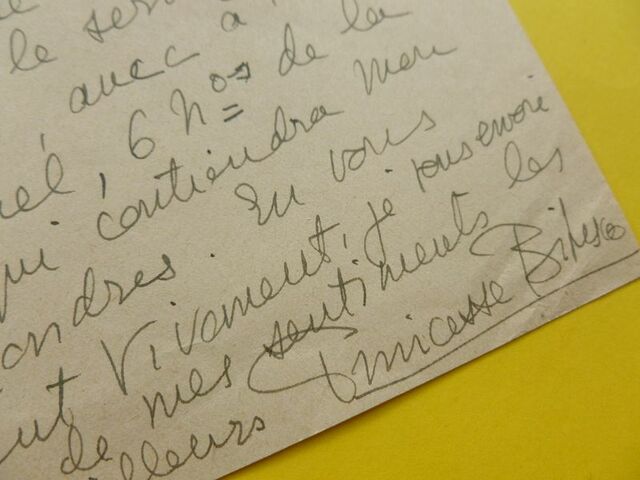 le ser
, avec
uel, 6 nos de la
qui contiendra mon
ondres. En vous
nt vivement, je vous envoie
de mes sentiments les
illeurs Princesse Bibesco